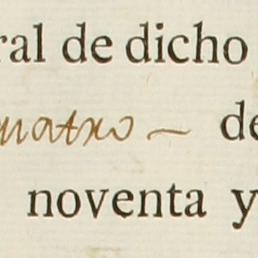 ral de dicho
quatro — de
noventa y